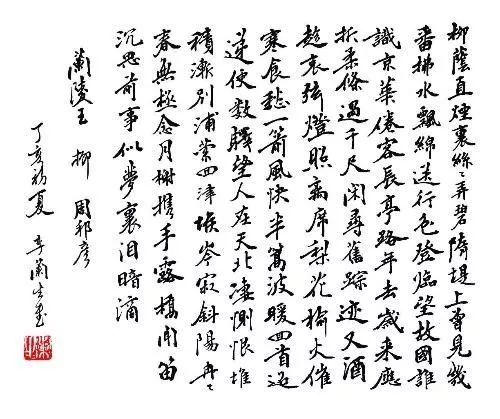 柳蔭直煙裏絲〻弄碧隋堤上曾見幾
番拂水飄綿送行色登臨望故國誰
識京華倦客長亭路年去歲來應
折柔條過千尺閑尋舊踪迹又酒
趁哀弦燈照離席梨花榆火催
寒食愁一箭風快半篙波暖回首迢
遞便數驛望人在天北凄惻恨堆
積漸別浦縈回津堠岑寂斜陽冉〻
春無極念月榭携手露橋聞笛
沉思前事似夢裏泪暗滴
蘭陵王 柳 周邦彦
丁亥初夏 李蘭生